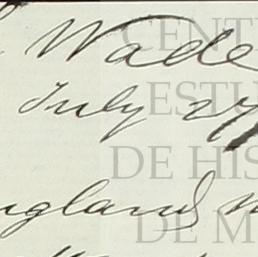 Wade
July 27
ngland
CENT
ESTU
DE HIS
DE M